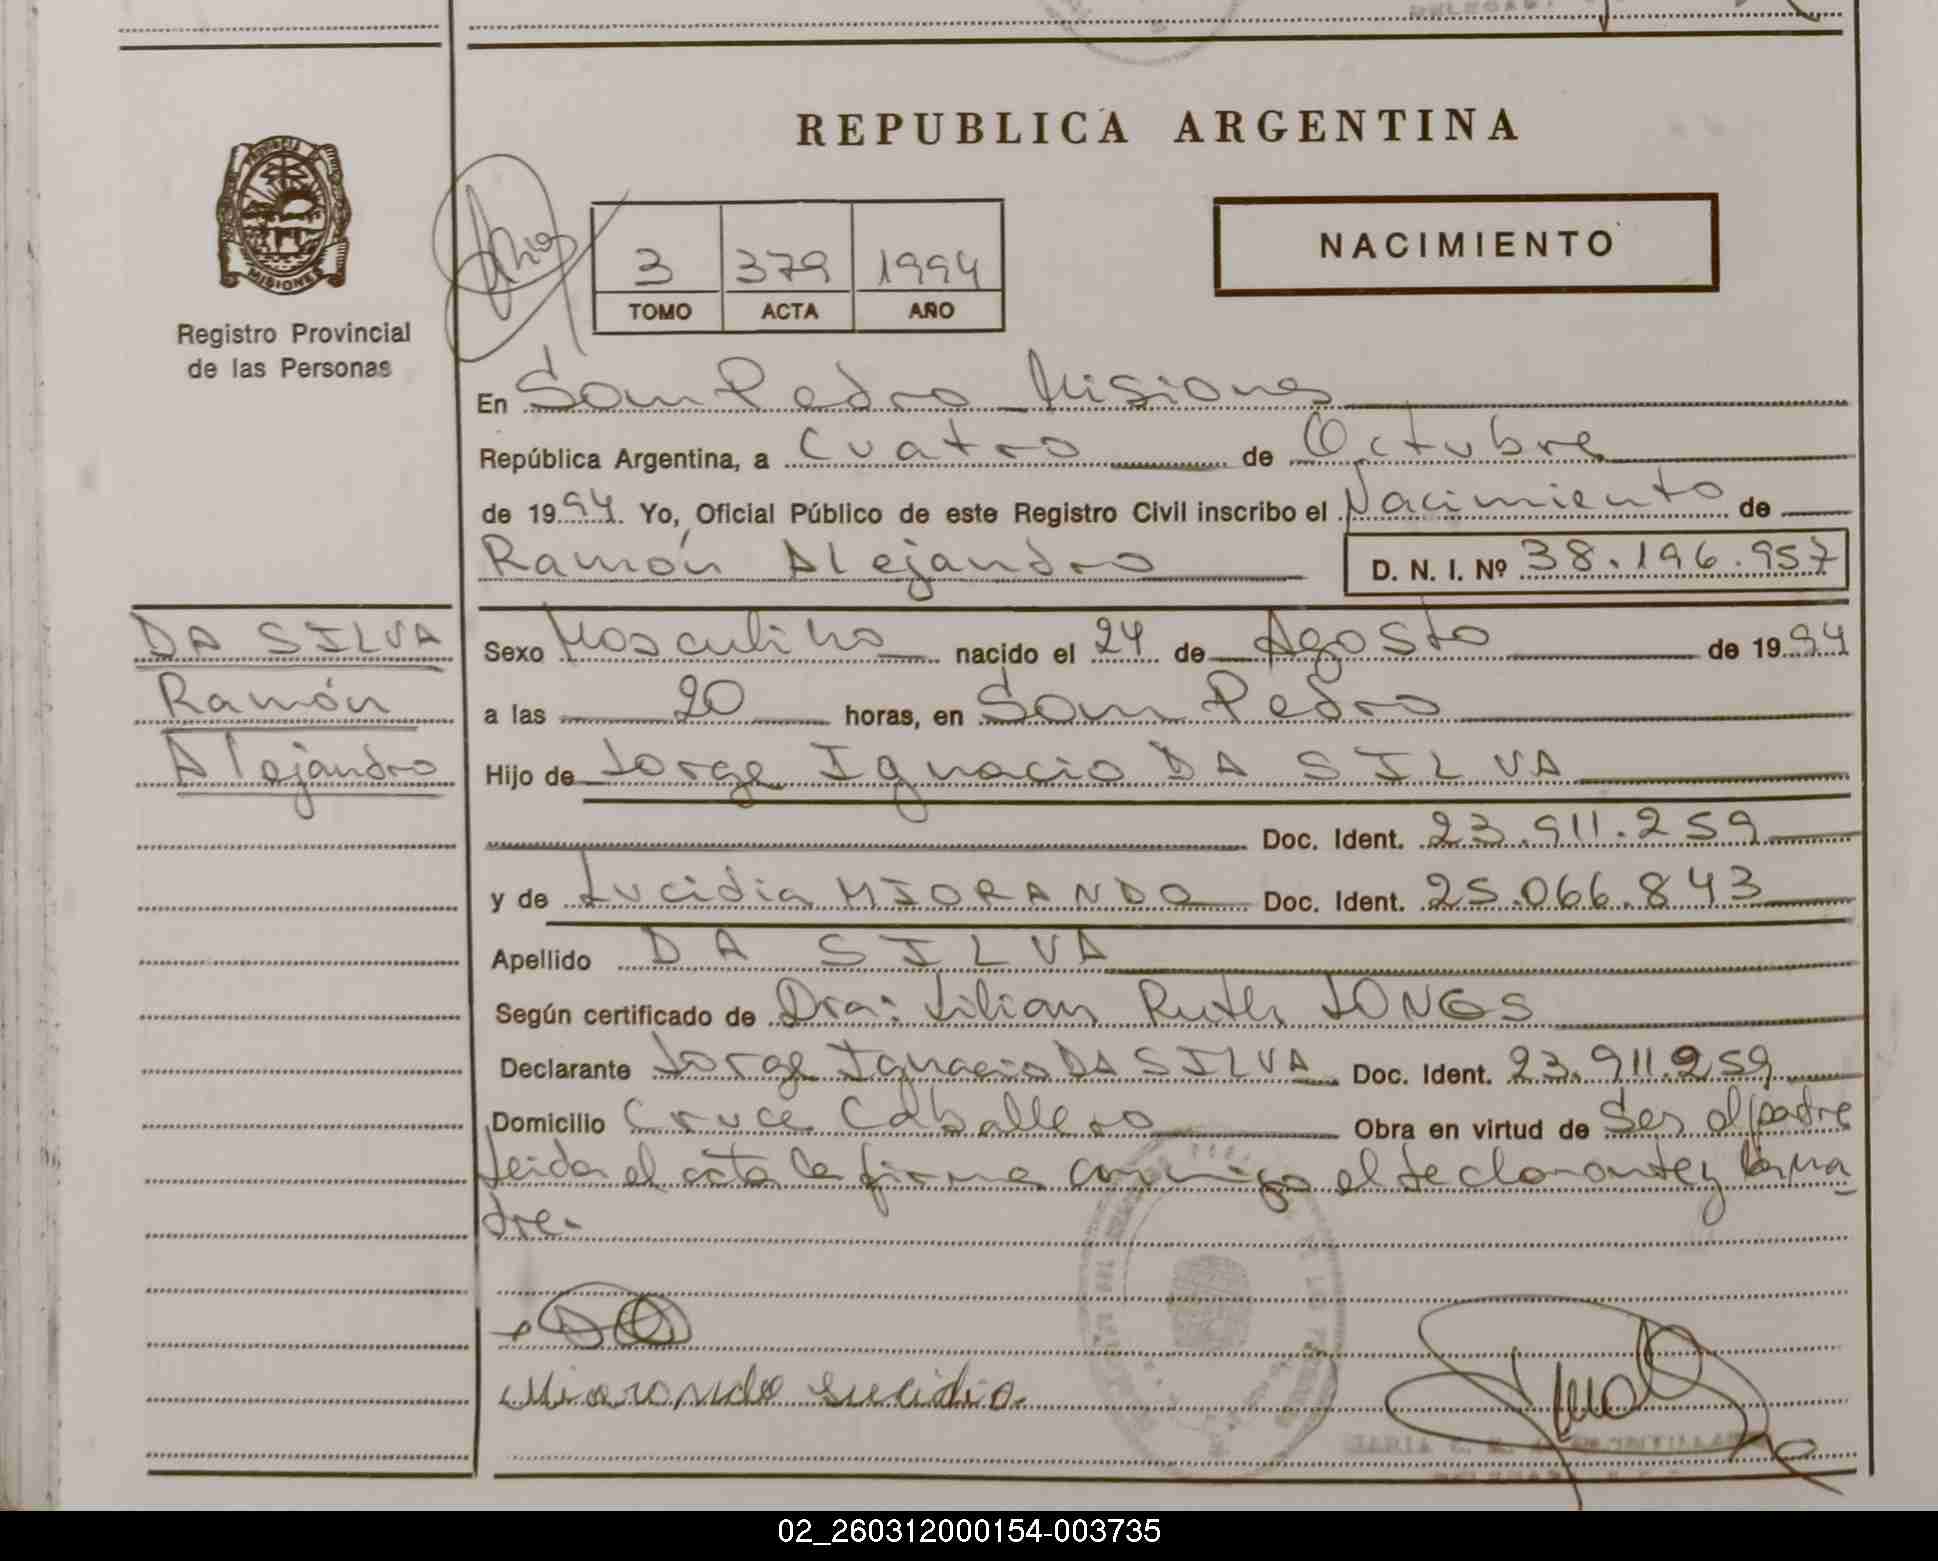 REPUBLICA ARGENTINA
PROVINCIA DE
MISIONES
Registro Provincial
de las Personas
3 379 1994
TOMO ACTA AÑO
NACIMIENTO
En San Pedro Misiones
República Argentina, a Cuatro de Octubre
de 1994. Yo, Oficial Público de este Registro Civil inscribo el Nacimiento de
Ramón Alejandro D. N. I. Nº 38.196.957
DA SILVA
Ramón
Alejandro
Sexo Masculino nacido el 24 de Agosto de 1994
a las 20 horas, en San Pedro
Hijo de Jorge Ignacio DA SILVA
Doc. Ident. 23.911.259
y de Lucidia MIORANDO Doc. Ident. 25.066.843
Apellido DA SILVA
Según certificado de Dra: Lilian Ruth JONGS
Declarante Jorge Ignacio DA SILVA Doc. Ident. 23.911.259
Domicilio Cruce Caballero Obra en virtud de Ser el padre
Leida el acta la firma conmigo el declarante y la ma
dre.
Miorando Lucidia
02_260312000154-003735